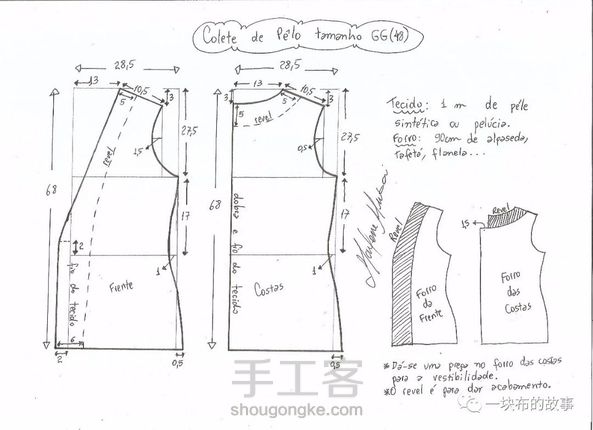 Colete de Pêlo tamanho GG(48)
28,5
13
10,5
5
3
revel
1,5
27,5
68
17
2
1
fio do tecido
Frente
6
2
0,5
28,5
13
10,5
3
5
5
3
revel
0,5
27,5
68
dobra e fio do tecido
17
1
Costas
0,5
Tecido: 1 m de pêle
sintética ou pelúcia.
Forro: 90cm de alpaseda,
tafetá, flanela...
Marlene Mukai
Revel
Forro
da
Frente
Revel
1,5
Forro
das
Costas
*Dá-se uma prega no forro das costas
para a vestibilidade.
*O revel é para dar acabamento.
手工客
shougongke.com
一块布的故事